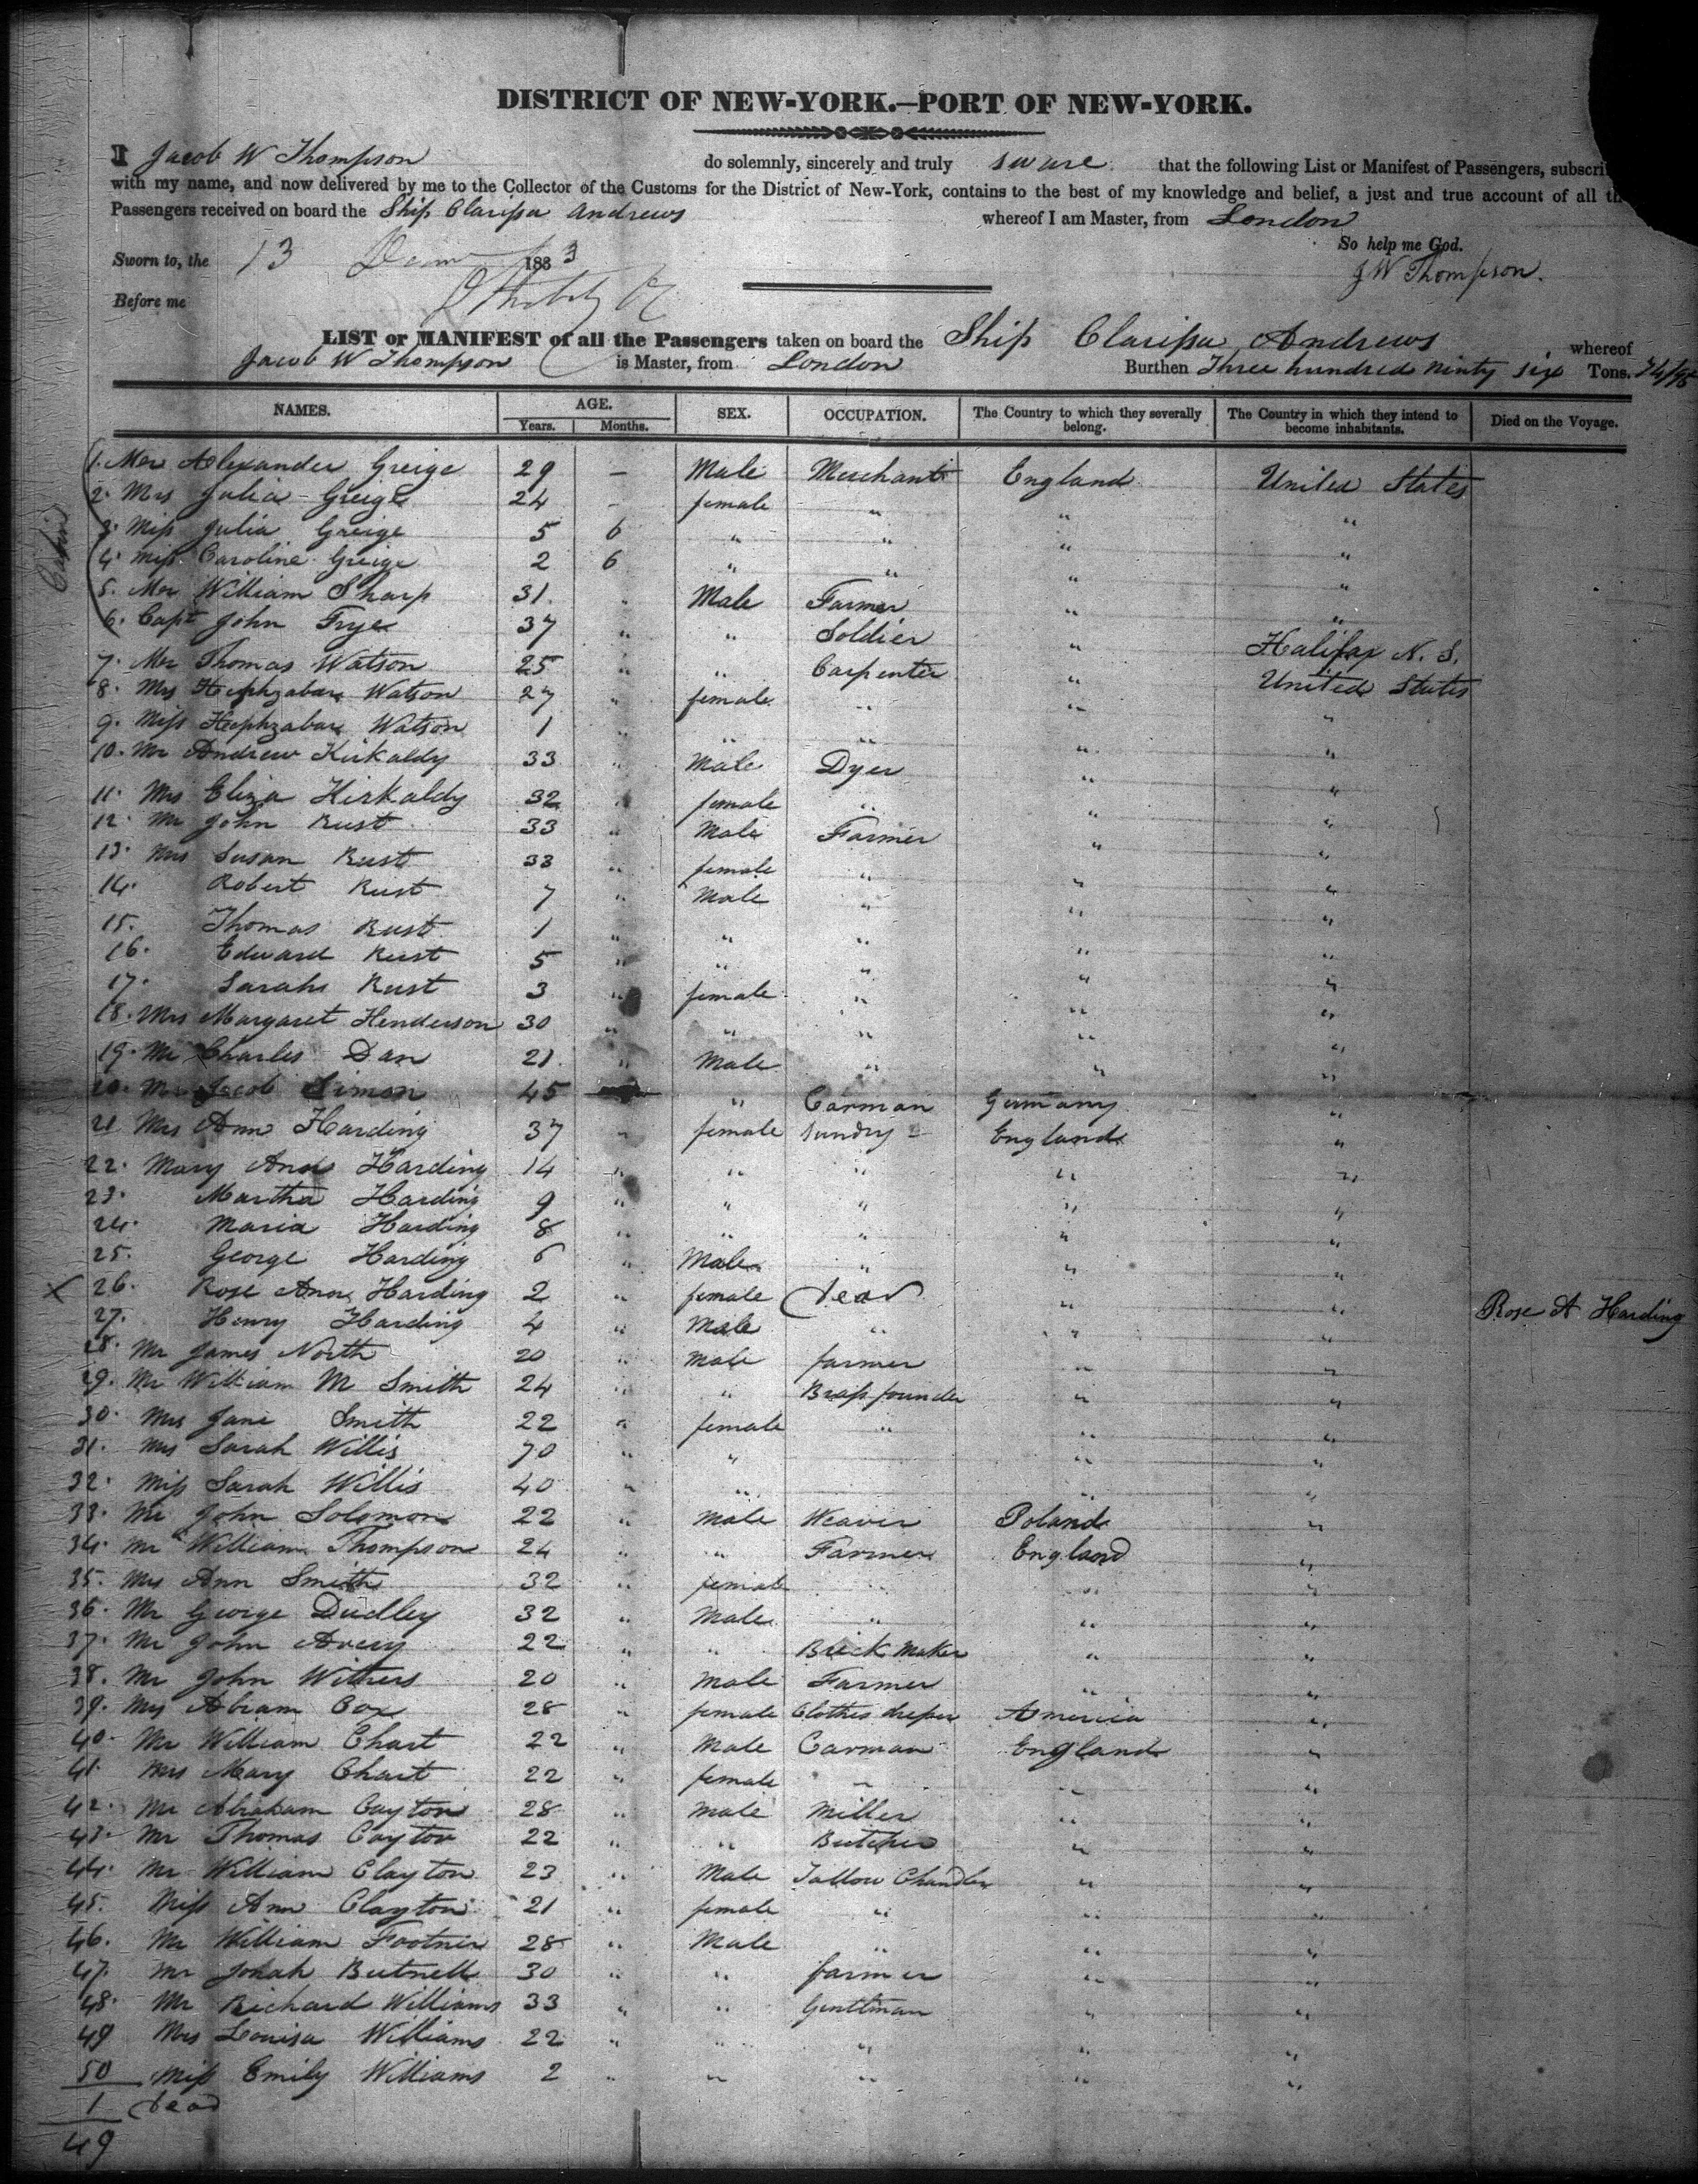 DISTRICT OF NEW-YORK.—PORT OF NEW-YORK.
I Jacob W Thompson do solemnly, sincerely and truly sware that the following List or Manifest of Passengers, subscri
with my name, and now delivered by me to the Collector of the Customs for the District of New-York, contains to the best of my knowledge and belief, a just and true account of all th
Passengers received on board the Ship Clarissa Andrews whereof I am Master, from London
So help me God.
Sworn to, the 13 1833 J W Thompson.
Before me
LIST or MANIFEST of all the Passengers taken on board the Ship Clarissa Andrews whereof
Jacob W Thompson is Master, from London Burthen Three hundred ninty six Tons.
NAMES. AGE. SEX. OCCUPATION. The Country to which they severally belong. The Country in which they intend to become inhabitants. Died on the Voyage.
Years. Months.
Cabin
1. Mr Alexander Greige 29 – Male Merchant England United States
2. Mrs Julia Greige 24 – female " " "
3. Miss Julia Greige 5 6 " " " "
4. Miss Caroline Greige 2 6 " " " "
5. Mr William Sharp 31 " Male Farmer " "
6. Capt John Frye 37 " " Soldier " Halifax N. S.
7. Mr Thomas Watson 25 " " Carpenter " United States
8. Mrs Hephzabar Watson 27 " female " " "
9. Miss Hephzabar Watson 1 " " " " "
10. Mr Andrew Kirkaldy 33 " Male Dyer " "
11. Mrs Eliza Kirkaldy 32 " female " " "
12. Mr John Rust 33 " Male Farmer " "
13. Mrs Susan Rust 33 " female " " "
14. Robert Rust 7 " Male " " "
15. Thomas Rust 1 " " " " "
16. Edward Rust 5 " " " " "
17. Sarah Rust 3 " female " " "
18. Mrs Margaret Henderson 30 " " " " "
19. Mr Charles Dan 21 " Male " " "
20. Mr Jacob Simon 45 " Carman Germany "
21 Mrs Ann Harding 37 " female Sundry England "
22. Mary Ann Harding 14 " " " " "
23. Martha Harding 9 " " " " "
24. Maria Harding 8 " " " " "
25. George Harding 6 " Male " " "
X 26. Rose Ann Harding 2 " female dead " " Rose A Harding
27. Henry Harding 4 " Male " " "
28. Mr James North 20 " Male farmer " "
29. Mr William M Smith 24 " " Brass founder " "
30. Mrs Jane Smith 22 " female " " "
31. Mrs Sarah Willis 70 " " " "
32. Miss Sarah Willis 40 " " " "
33. Mr John Solomon 22 " Male Weaver Poland "
34. Mr William Thompson 24 " " Farmer England "
35. Mrs Ann Smith 32 " female " " "
36. Mr George Dudley 32 " Male " " "
37. Mr John Avery 22 " " Brick Maker " "
38. Mr John Withers 20 " Male Farmer " "
39. Mrs Abiam Cox 28 " female Clothes America "
40. Mr William Chart 22 " Male Carman England "
41. Mrs Mary Chart 22 " female " " "
42. Mr Abraham Cayton 28 " Male Miller " "
43. Mr Thomas Cayton 22 " " Butcher " "
44. Mr William Clayton 23 " Male Tallow Chandler " "
45. Miss Ann Clayton 21 " female " " "
46. Mr William Footner 28 " Male " " "
47. Mr Jonah Butnell 30 " " farmer " "
48. Mr Richard Williams 33 " " Gentleman " "
49 Mrs Louisa Williams 22 " " " " "
50 Miss Emily Williams 2 " " " " "
1 dead
49